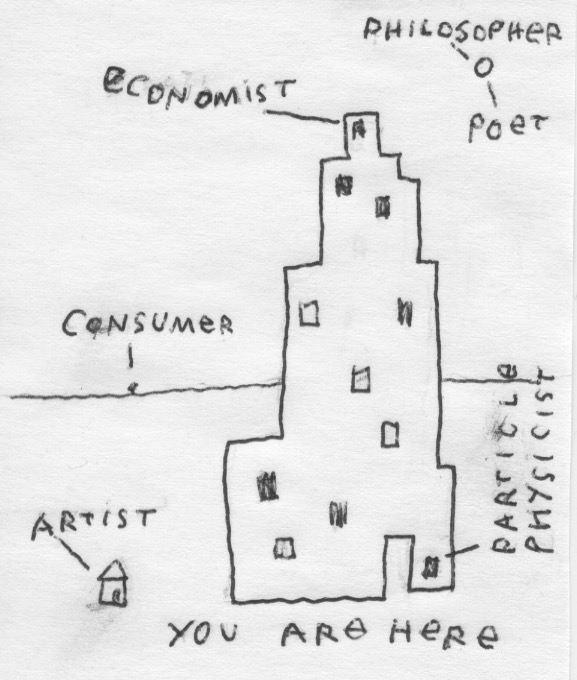 PHILOSOPHER
ECONOMIST
POET
CONSUMER
PARTICLE
PHYSICIST
ARTIST
YOU ARE HERE